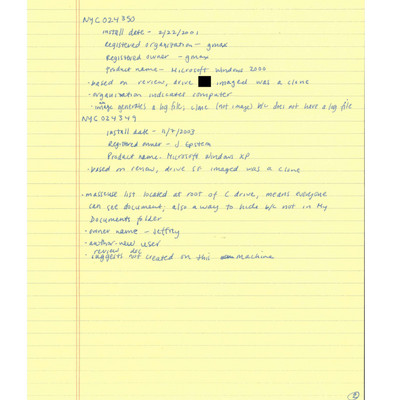 NYC024350
Install date - 2/22/2001
Registered organization - gmax
Registered owner - gmax
Product name - Microsoft Windows 2000
· based on review, drive imaged was a clone
· organization indicates computer
· an image generates a log file; clone (not image) b/c does not have a log file
NYC024349
Install date - 11/7/2003
Registered owner - J. Epstein
Product name - Microsoft Windows XP
· based on review, drive imaged was a clone
· massuse list located at root of C drive, means everyone
can see document; also a way to hide b/c not in My
Documents folder
· owner name - Jeffrey
· author - new user
review doc
· suggests not created on this machine